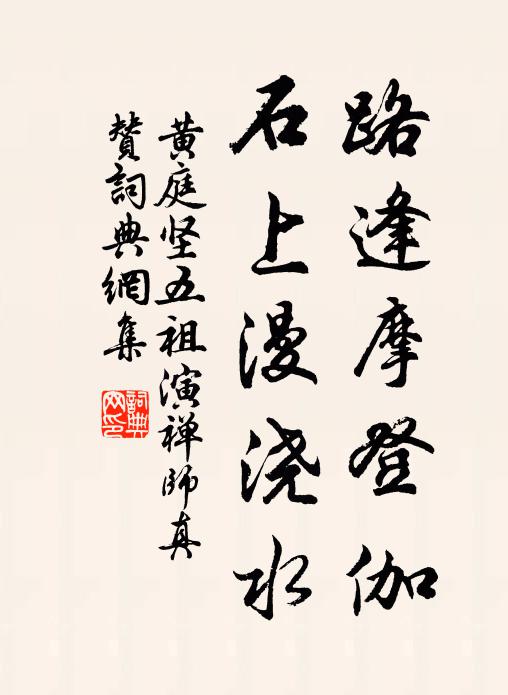 路逢摩登伽
石上漫浇水
黄庭坚五祖演禅师真
赞詞典網集
詞典网印